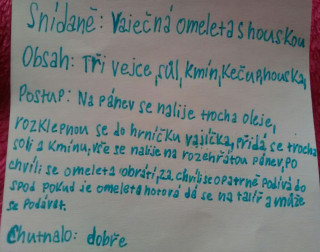 Snídaně: vaječná omeleta s houskou
Obsah: Tři vejce, sůl, kmín, kečup, houska,
Postup: Na pánev se nalije trocha oleje,
rozklepnou se do hrníčku vajíčka, přidá se trocha
soli a kmínu, vše se nalije na rozehřátou pánev, po
chvíli se omeleta obrátí, za chvíli se opatrně podívá do
spod pokud je omeleta hotová dá se na talíř a může
se podávat.
Chutnalo: dobře